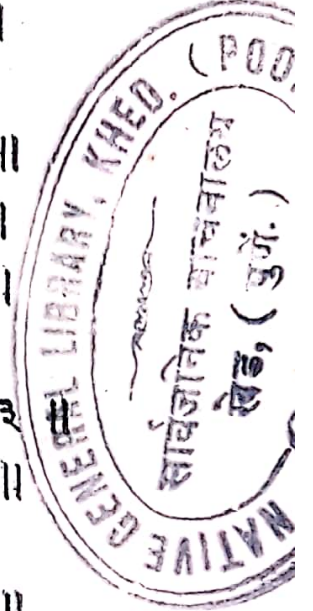 NATIVE GENERAL LIBRARY, KHED. (POO
सार्वजनिक वाचनालय
खेड, (पुणें.)
।
॥
।
।
३
॥
॥